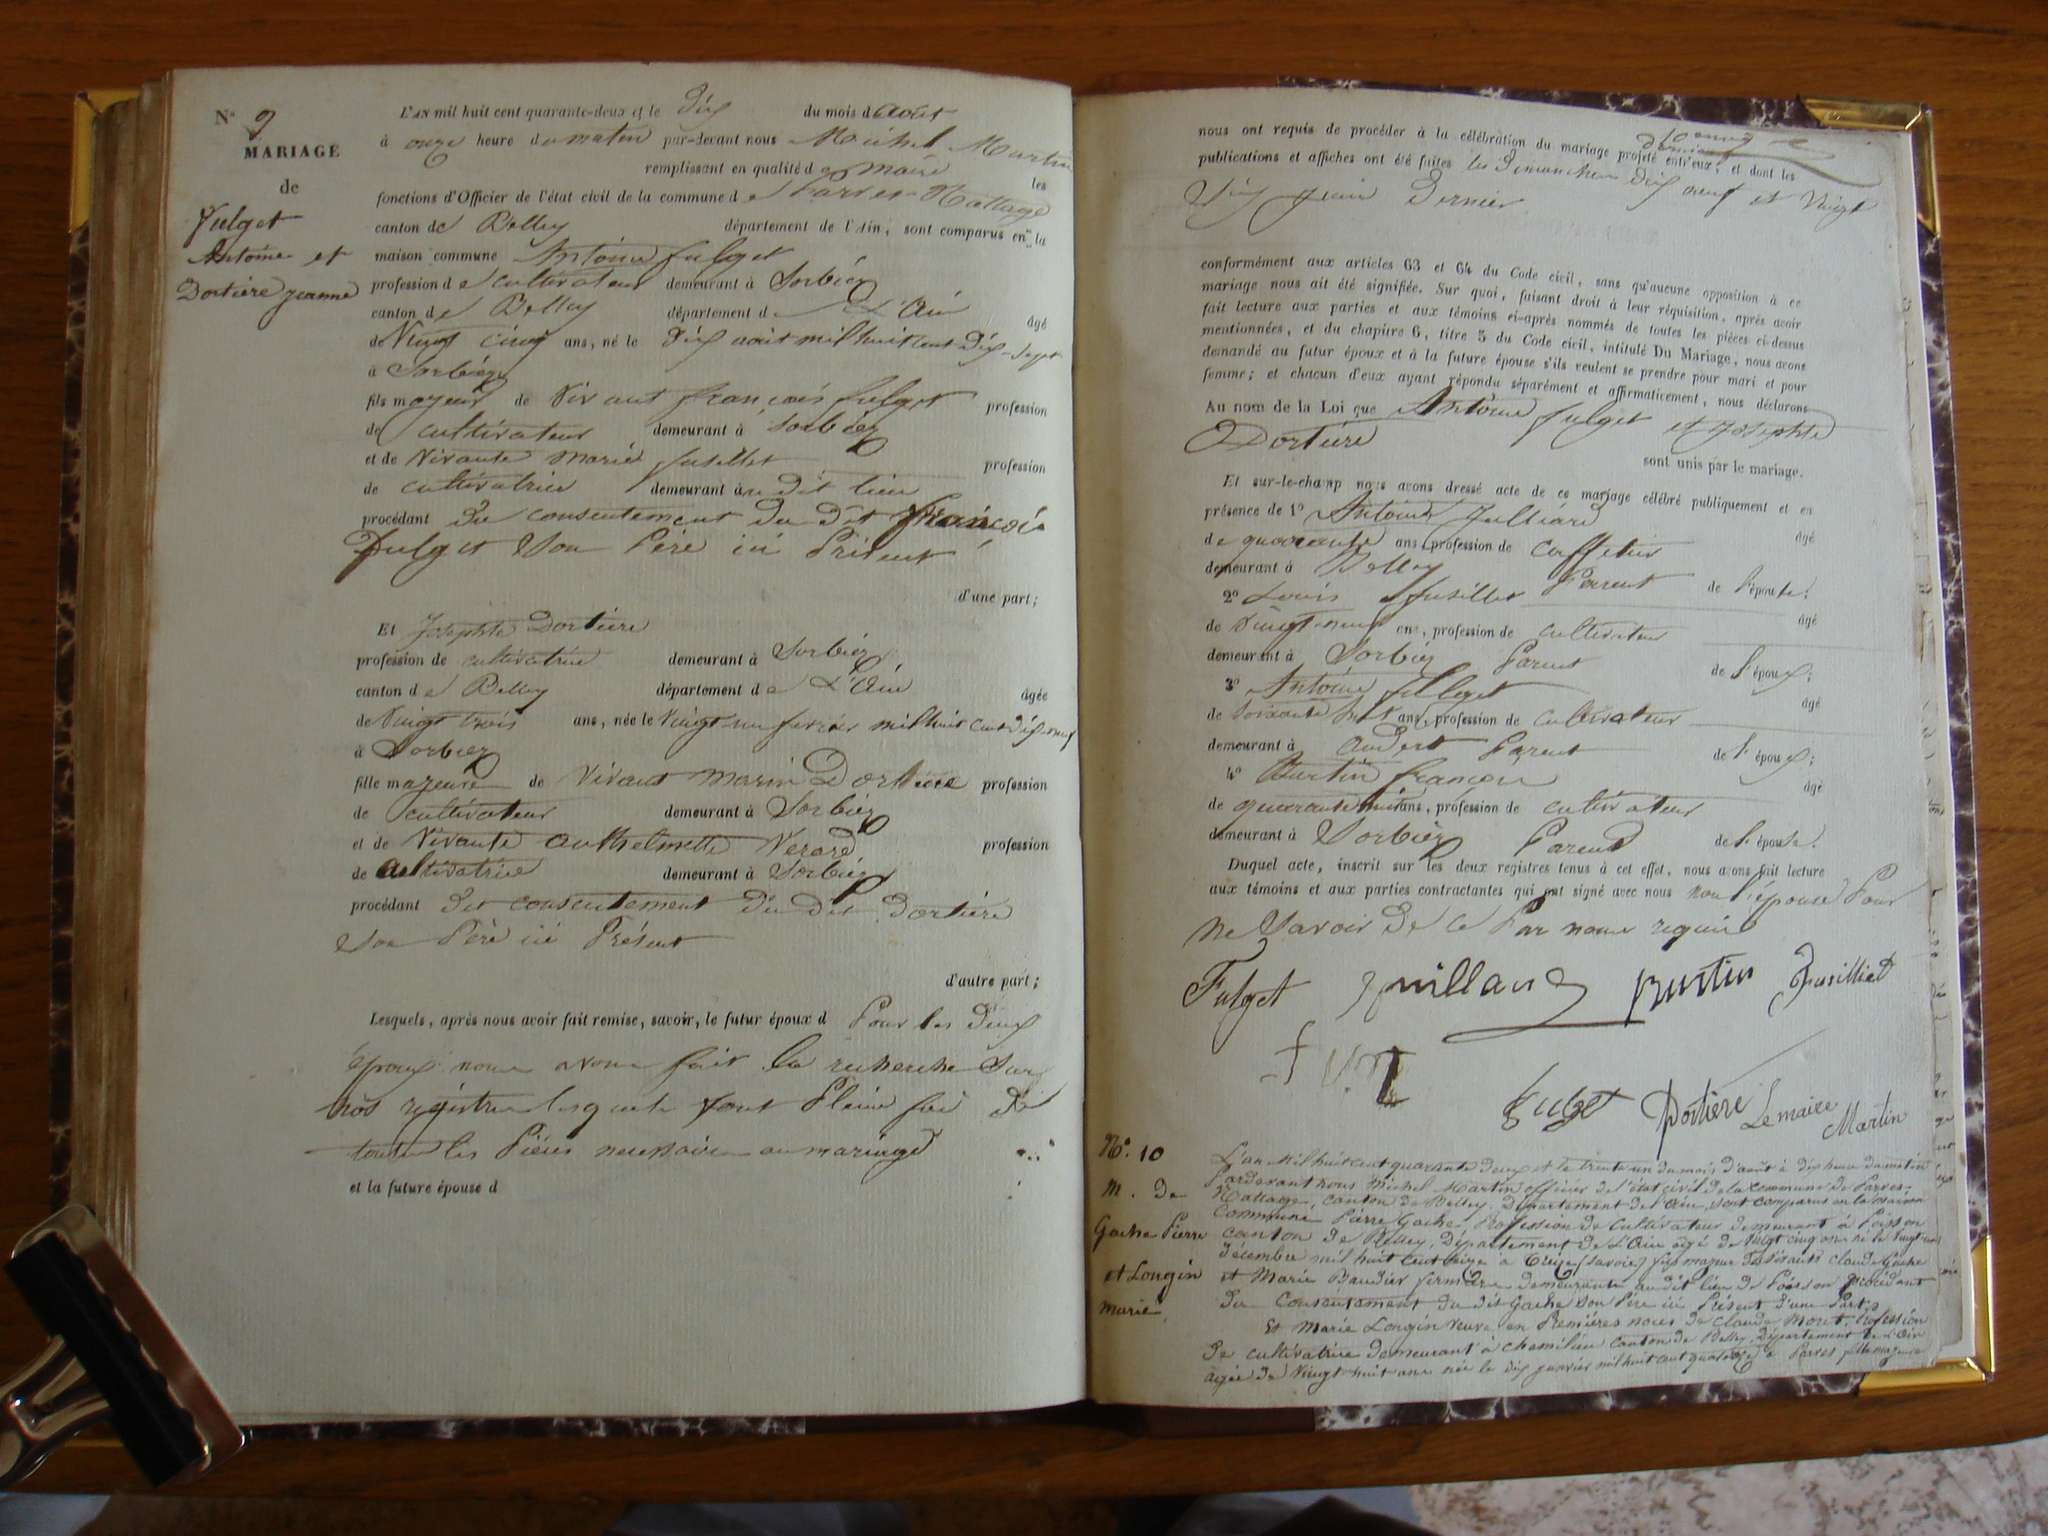 N° 9
MARIAGE
de
Fulget
Antoine et
Dortiere jeanne
L'AN mil huit cent quarante-deux et le Dix du mois d août
à onze heure du matin par-devant nous Michel Martin
remplissant en qualité de maire les
fonctions d'Officier de l'état civil de la commune de Parves-Nattage
canton de Belley département de l'Ain, sont comparus en la
maison commune Antoine fulget
profession de cultivateur demeurant à Sorbiez
canton de Belley département de L'Ain âgé
de Vingt cinq ans, né le Dix août mil huit cent Dix-sept
à Sorbiez
fils mageur de Vivant françois fulget profession
de cultivateur demeurant à Sorbiez
et de Vivante marie fusillet profession
de cultivatrice demeurant au Dit lieu
procédant Du consentement Du dit françois
fulget Son Père ici Présent
d'une part;
Et Josephte Dortiere
profession de cultivatrice demeurant à Sorbiez
canton de Belley département de L'Ain âgée
de Vingt trois ans, née le Vingt un fevrier mil huit cent Dix-neuf
à Sorbiez
fille mageure de Vivant marin Dortiere profession
de cultivateur demeurant à Sorbiez
et de Vivante anthelmette Verard profession
de cultivatrice demeurant à Sorbiez
procédant Du consentement Du Dit Dortiére
Son Père ici Présent
d'autre part;
Lesquels, après nous avoir fait remise, savoir, le futur époux d Pour les Deux
époux nous avons fait la recherche Sur
nos régistres lesquels font Pleine foi De
toutes les Pièces necessaire au mariage
et la future épouse d
nous ont requis de procéder à la célébration du mariage projeté entr'eux, et dont les
publications et affiches ont été faites les Dimanches Dix neuf et Vingt
Six juin Dernier
conformément aux articles 63 et 64 du Code civil, sans qu'aucune opposition à ce
mariage nous ait été signifiée. Sur quoi, faisant droit à leur réquisition, après avoir
fait lecture aux parties et aux témoins ci-après nommés de toutes les pièces ci-dessus
mentionnées, et du chapitre 6, titre 5 du Code civil, intitulé Du Mariage, nous avons
demandé au futur époux et à la future épouse s'ils veulent se prendre pour mari et pour
femme; et chacun d'eux ayant répondu séparément et affirmativement, nous déclarons
Au nom de la Loi que Antoine fulget et Josephte
Dortiére
sont unis par le mariage.
Et sur-le-champ nous avons dressé acte de ce mariage célébré publiquement et en
présence de 1° Antoine Julliard âgé
de quarante ans, profession de caffetier
demeurant à Belley Parent de l'épouse.
2° Louis fusillet âgé
de Vingt-neuf ans, profession de cultivateur
demeurant à Sorbiez Parent de l'époux;
3° Antoine fulget âgé
de Soixante ans, profession de cultivateur
demeurant à Andert Parent de l'époux;
4° Burtin françois âgé
de quarante huit ans, profession de cultivateur
demeurant à Sorbiez Parent de l'épouse.
Duquel acte, inscrit sur les deux registres tenus à cet effet, nous avons fait lecture
aux témoins et aux parties contractantes qui ont signé avec nous non l'épouse Pour
ne Savoir De ce Par nous requis
Fulget Juillard Burtin Fusilliet
Fulget Dortiere Le maire
Martin
N°. 10
M. de
Gache Pierre
et Longin
marie
L'an mil huit cent quarante Deux et le trente un du mois d'août à dix heure du matin
Pardevant nous Michel Martin officier de l'état civil de la commune de Parves-
Nattage, canton de Belley. Département de l'Ain, sont comparus en la maison
commune Pierre Gache, Profession de cultivateur demeurant à Poisson
canton de Belley, Département de L'Ain agé de Vingt cinq ans né le Vingt un
décembre mil huit cent seize à (Savoie) fils majeur des Vivants claude Gache
et Marie Baudier fermière demeurants au dit lieu de Poisson procédant
du consentement du dit Gache Son Père ici Présent d'une Part;
Et Marie Longin Veuve en Premières noces de claude Moret. Profession
de cultivatrice demeurant à chemilieu canton de Belley, Département de L'Ain
agée de Vingt huit ans née le dix janvier mil huit cent quatorze à Parves fille mageure